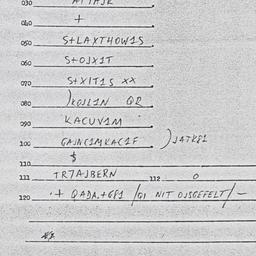 030
040 +
050 S+LAXTHOW1S
060 S+OJX1T
070 S+XIT1S XX
080 )KOJL1N QR
090 KACUV1M
100 GAJNC1MKAC1F )JATKE1
$
110
111 TR7AJBERN 112 O
120 + QADA.+G81 /Q1 NIT OJSGEFELT/ -